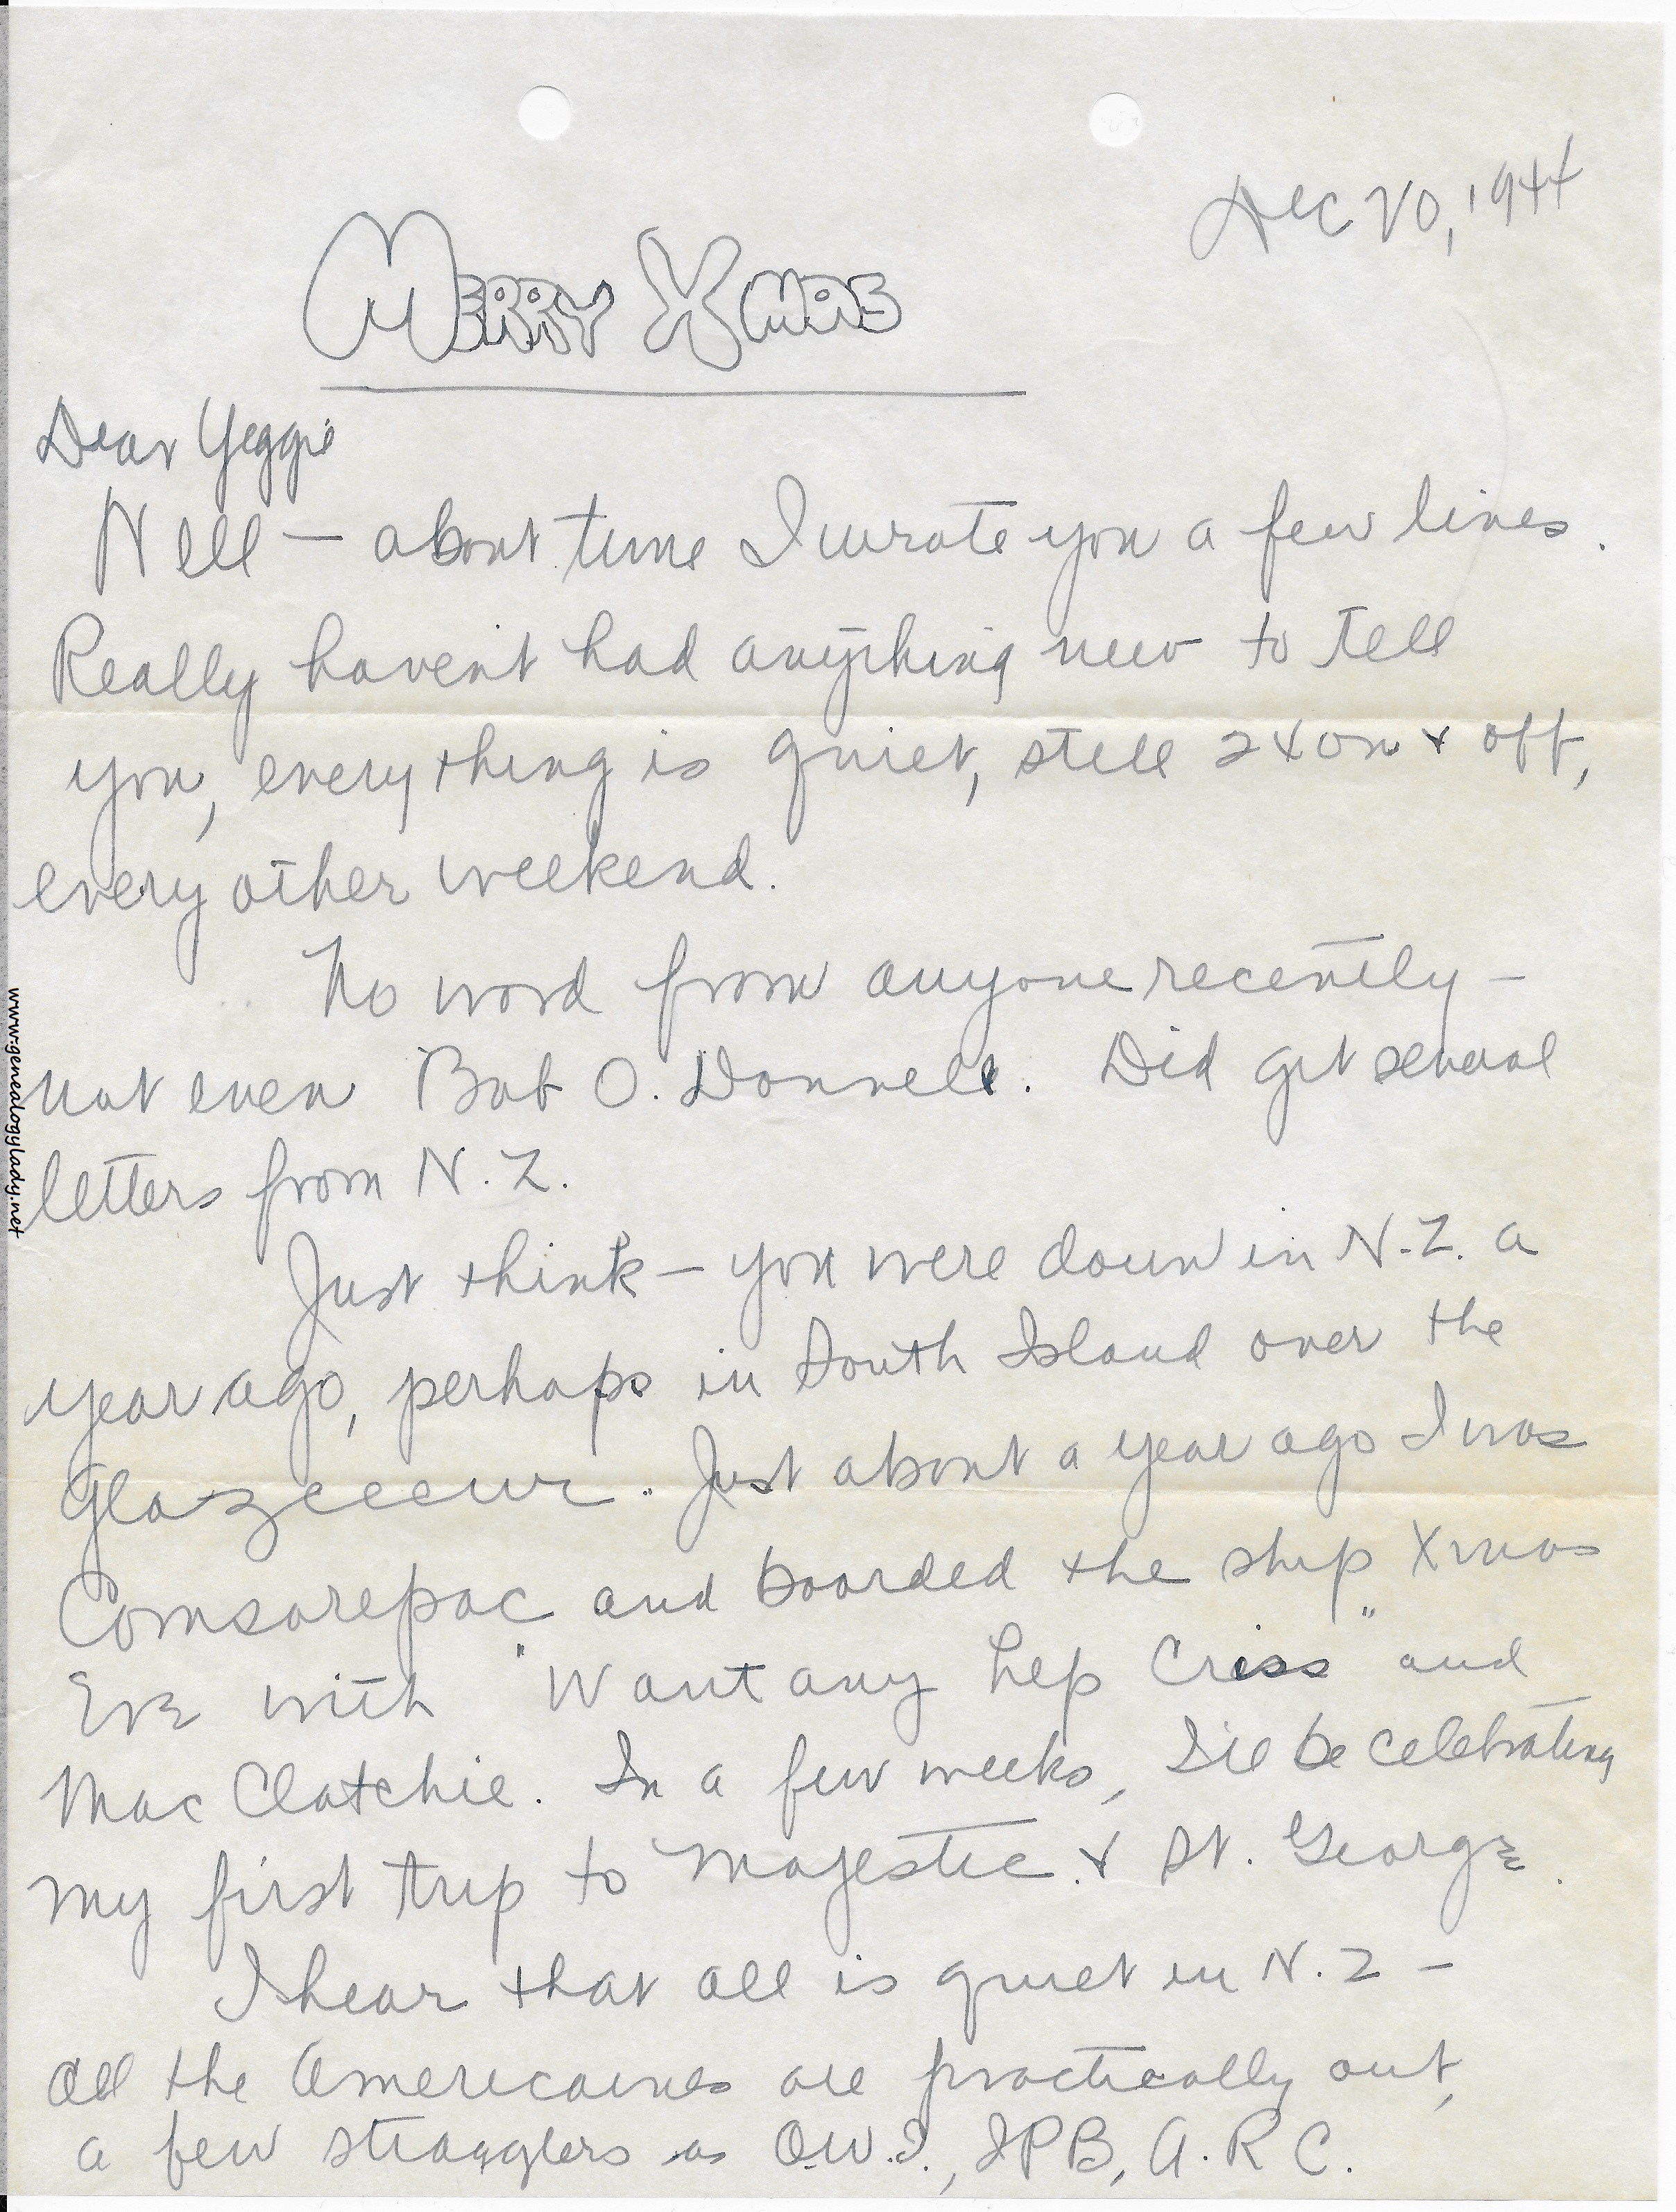 Dec 20, 1944
MERRY XMAS
Dear Yeggie
Well – about time I wrote you a few lines.
Really haven't had anything new to tell
you, everything is quiet, still 24 on & off,
every other weekend.
No word from anyone recently –
not even Bob O. Donnell. Did get several
letters from N. Z.
Just think – you were down in N.Z. a
year ago, perhaps in South Island over the
Glazeeeur. Just about a year ago I was
Comsorepac and boarded the ship Xmas
Eve with "Want any hep Criss" and
MacClatchie. In a few weeks, I'll be celebrating
my first trip to Majestic & St. George.
I hear that all is quiet in N.Z –
all the Americaines are practically out,
a few stragglers as O.W.I., JPB, A.R.C.
www.genealogylady.net